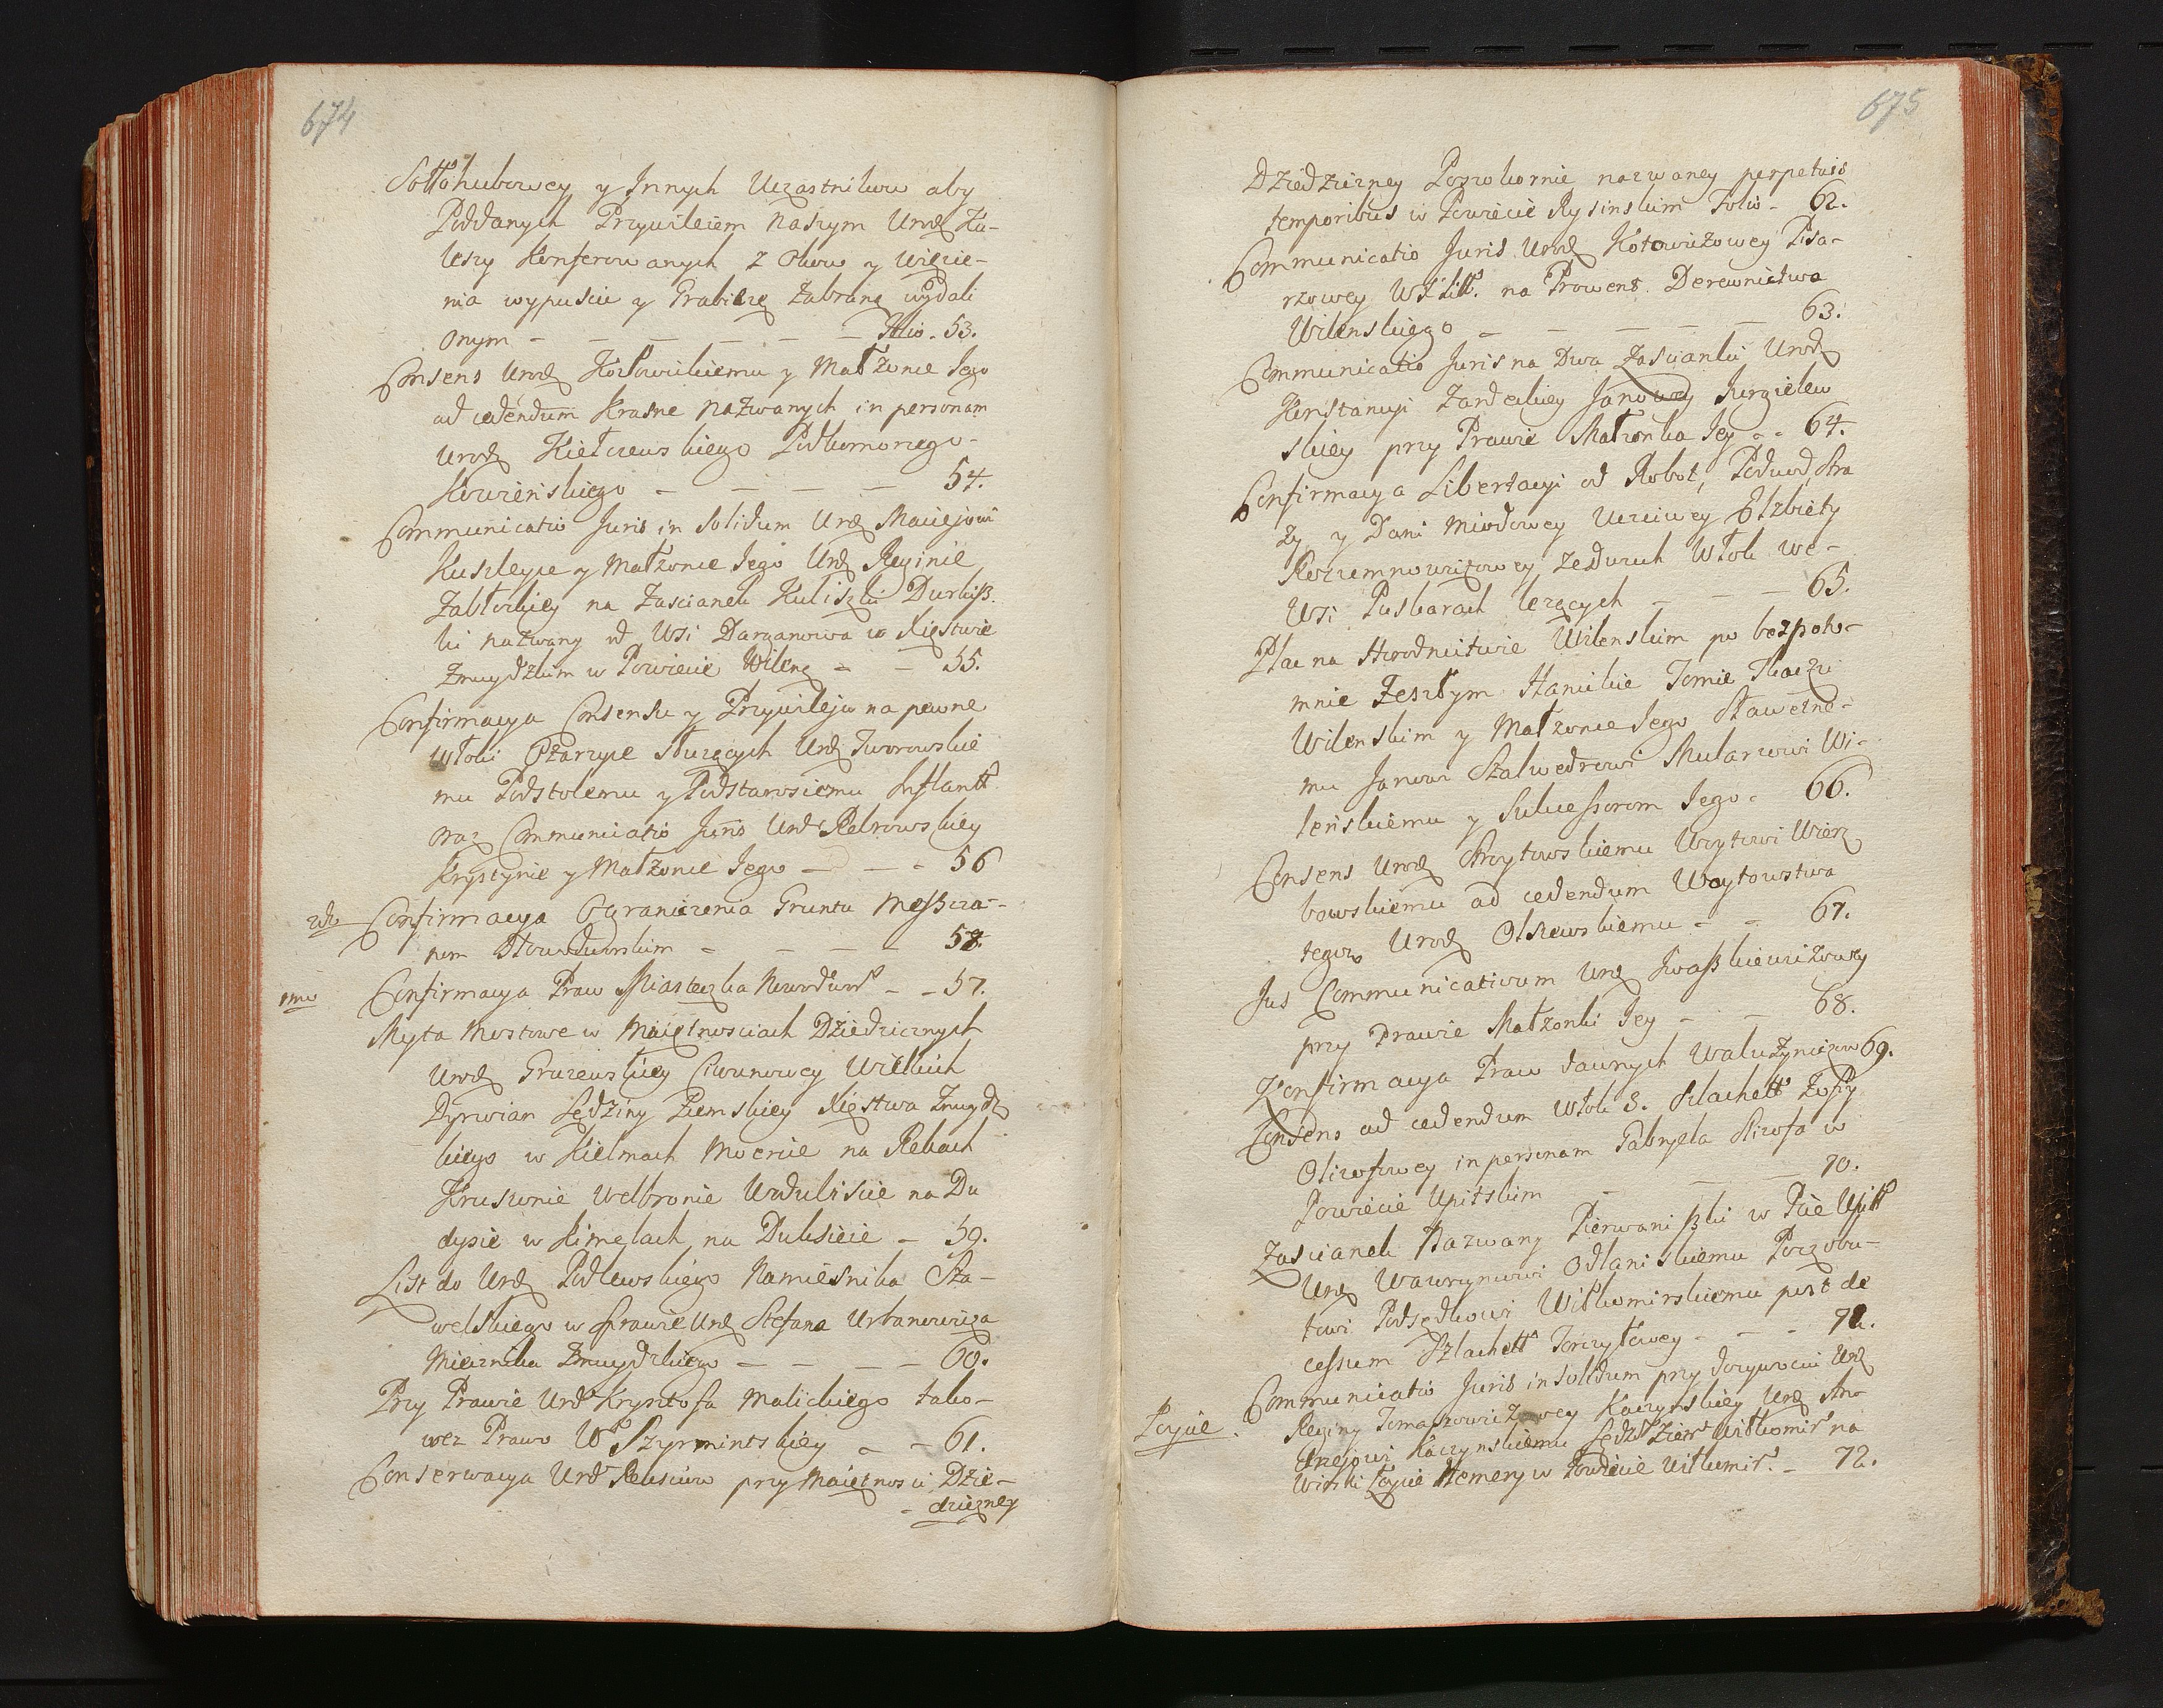 674
Sołłohubowey y Innych Uczastnikow aby
Poddanych Przywileiem Naszym Urodz Za-
leszy Konferowanych z Okow y Więzie-
nia wypuście y Grabieżę Zabraną wydali
onym - - - - - - Folio. 53.
Consens Urodz Kozłowskiemu y Małżonce Jego
ad cedendum Krasne Nazwanych in personam
Urodz Kiełczewskiego Podkomorzego
Kowieńskiego - - - - 54.
Communicatio Juris in Solidum Urodz Maciejowi
Kuszleyce y Małżonce Jego Urodz Reginie
Zabłockiey na Zascianek Kuliszki Durkisz-
ki nazwany od Wsi Darganowa w Xięstwie
Zmuydzkim w Powiecie Wilenz - - 55.
Confirmacya Consensu y Przywileju na pewne
Włoki Ożarzyce służących Urodz Jworowskie
mu Podstolemu y Podstarosciemu Inflantt
oraz Communicatio Juris Urodz Rebrowskiey
Krystynie y Małżonce Jego - - - 56
2do Confirmacya Ograniczenia Gruntu Mieszcza-
nom Nowodworskim - - - - 58.
1mo Confirmacya Praw Miasteczka Nowodwor - - 57.
Myta Mostowe w Maiętnosciach Dziedzicznych
Urodz Gruzewskiey Ciwunowey Wielkich
Dyrwian Sędziny Ziemskiey Xięstwa Zmuydz
kiego w Kielmach Mocnie na Rekach
Kruszonie Welbronie Wodulisie na Du
dysie w Kimelach na Dubisicie - 59.
List do Urodz Podlewskiego Namiesnika Sza-
welskiego w sprawie Urodz Stefana Urbanowicza
Miecznika Zmuydzkiego - - - - 60.
Przy Prawie Urod Krysztofa Malickiego tako-
wez Prawo W Szyrmintskiey - - 61.
Conserwacya Urod Reusciow przy Maiętnosci Dzie-
- dziczney
675
Dziedziczney Pozwolornie nazwaney perpetuis
temporibus w Powiecie Rysinskim Folio - 62.
Communicatio Juris Urodz Kotowiczowey Pisa-
rzowey WX Litt. na Prowent Derewnictwa
Wilenskiego - - - - - 63.
Communicatio Juris na Dwa Zascianki Urodz
Konstancyi Zardeckiey Janowey Jurgielew
skiey przy Prawie Małżonka Jey - - 64.
Confirmacya Libertacyi od Robot, Podwod, Stra
ży y Dani Miodowey Uczciwey Elzbiety
Rozumnowiczowey ze dwuch Włok we
Wsi Puskarach lezących - - - 65.
Plac na Horodnictwie Wilenskim po bezpoto-
mnie Zeszłym Hanuike Tomie Tkaczu
Wilenskim y Małżonce Jego Sławetne-
mu Janowi Szalwedrowi Mularzowi Wi-
lenskiemu y Sukcessorom Jego - 66.
Consens Urodz Strzytowskiemu Woytowi Wierz
bowskiemu ad cedendum Woytowstwa
tegoz Urodz Olszewskiemu - - 67.
Jus Communicativum Urodz Iwaszkiewiczowey
przy Prawie Małżonki Jey - - 68.
Konfirmacya Praw dawnych Waluzyniczow 69.
Consens ad cedendum Włok 3. Szlachett Zofiy
Oliwfowey in personam Gabryela Oliwfa w
Powiecie Upitskim - - - 70.
Zascianek Nazwany Pierwaniszki w Pcie Upitt
Urodz Wawrzyncowi Odlaniskiemu Poczobu-
towi Podsędkowi Wiłkomirskiemu post de
cessum Szlachett Jonczytowey - - - 71.
Communicatio Juris in solidum przy dozywociu Urodz
Łoycie. Reginy Tomaszewiczowey Kaczynskiey Urodz An-
drzejowi Kaczynskiemu Sędz Ziem Wiłkomir na
Wioski Łoycie Homery w Powiecie Wiłkomir. - 72.